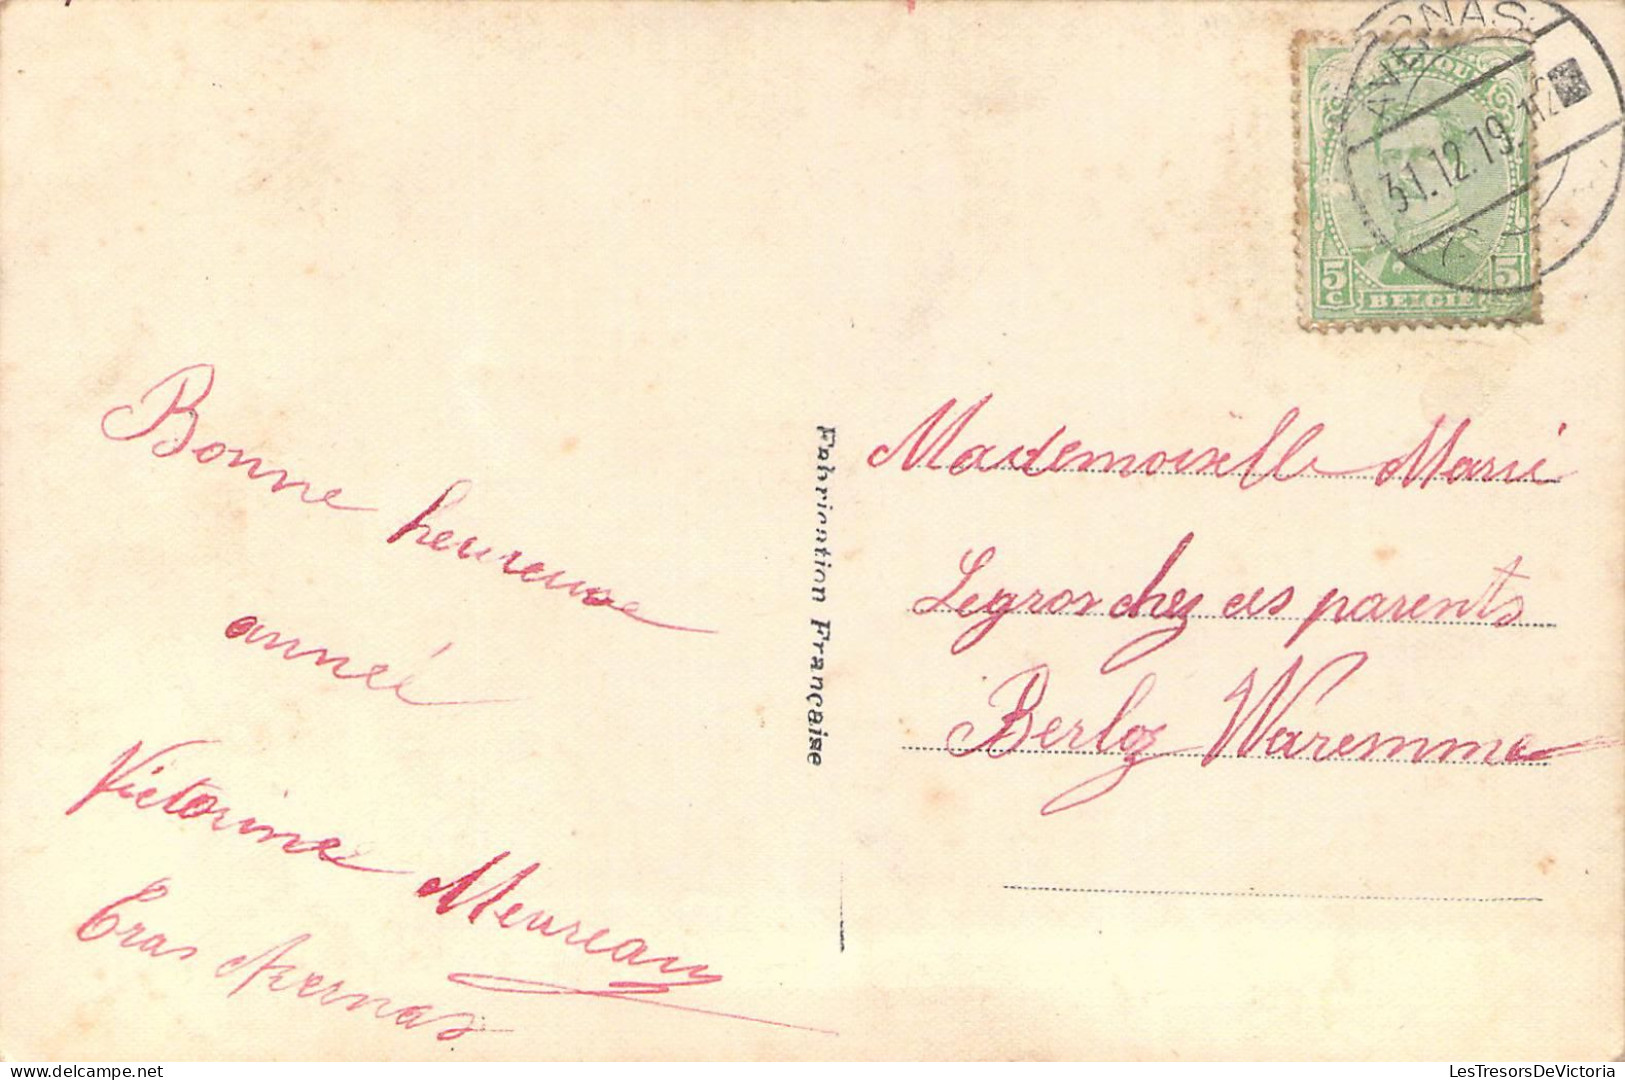 AVERNAS
31.12.19
5
C
BELGIE
5
Bonne heureuse
année
Victorine Meureau
Cras Avernas
Fabrication Française
Mademoiselle Marie
Legros chez ces parents
Berloz Waremme
LesTresorsDeVictoria
www.delcampe.net